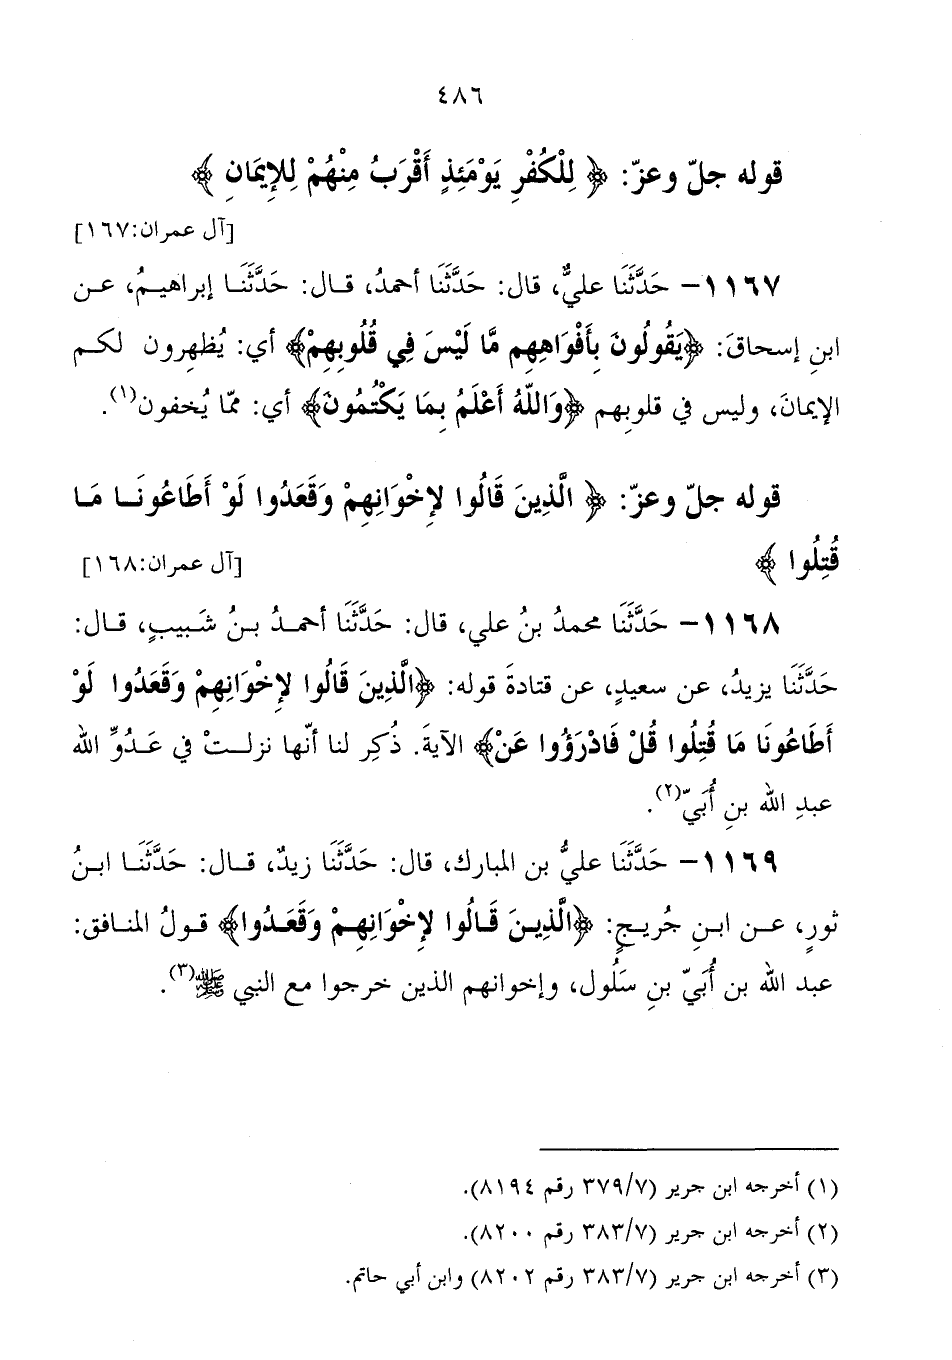 ٤٨٦
قوله جلّ وعزّ: ﴿ لِلْكُفْرِ يَوْمَئِذٍ أَقْرَبُ مِنْهُمْ لِلإِيمَانِ ﴾
[آل عمران:١٦٧]
١١٦٧- حَدَّثَنَا عليٌّ، قال: حَدَّثَنَا أحمدُ، قـال: حَدَّثَنَـا إبراهيـمُ، عـن
ابنِ إسحاقَ: ﴿يَقُولُونَ بِأَفْوَاهِهِم مَّا لَيْسَ فِي قُلُوبِهِمْ﴾ أي: يُظهِرون لكـم
الإيمانَ، وليس في قلوبِهم ﴿وَاللَّهُ أَعْلَمُ بِمَا يَكْتُمُونَ﴾ أي: ممّا يُخفون(١).
قوله جلّ وعزّ: ﴿ الَّذِينَ قَالُوا لإِخْوَانِهِمْ وَقَعَدُوا لَوْ أَطَاعُونَـا مَـا
قُتِلُوا ﴾ [آل عمران:١٦٨]
١١٦٨- حَدَّثَنَا محمدُ بنُ علي، قال: حَدَّثَنَا أحمـدُ بـنُ شَـبيبٍ، قـال:
حَدَّثَنَا يزيدُ، عن سعيدٍ، عن قتادةَ قوله: ﴿الَّذِينَ قَالُوا لإِخْوَانِهِمْ وَقَعَدُوا لَوْ
أَطَاعُونَا مَا قُتِلُوا قُلْ فَادْرَؤُوا عَنْ﴾ الآيةَ. ذُكِر لنا أنّها نزلـتْ في عَـدُوِّ الله
عبدِ الله بنِ أُبَيّ(٢).
١١٦٩- حَدَّثَنَا عليُّ بن المبارك، قال: حَدَّثَنَا زيدٌ، قـال: حَدَّثَنَـا ابـنُ
ثورٍ، عـن ابـنِ جُريـجٍ: ﴿الَّذِيـنَ قَـالُوا لإِخْوَانِهِـمْ وَقَعَـدُوا﴾ قـولُ المنـافق:
عبد الله بن أُبَيّ بنِ سَلُول، وإخوانهم الذين خرجوا مع النبي ﷺ(٣).
(١) أخرجه ابن جرير (٣٧٩/٧ رقم ٨١٩٤).
(٢) أخرجه ابن جرير (٣٨٣/٧ رقم ٨٢٠٠).
(٣) أخرجه ابن جرير (٣٨٣/٧ رقم ٨٢٠٢) وابن أبي حاتم.